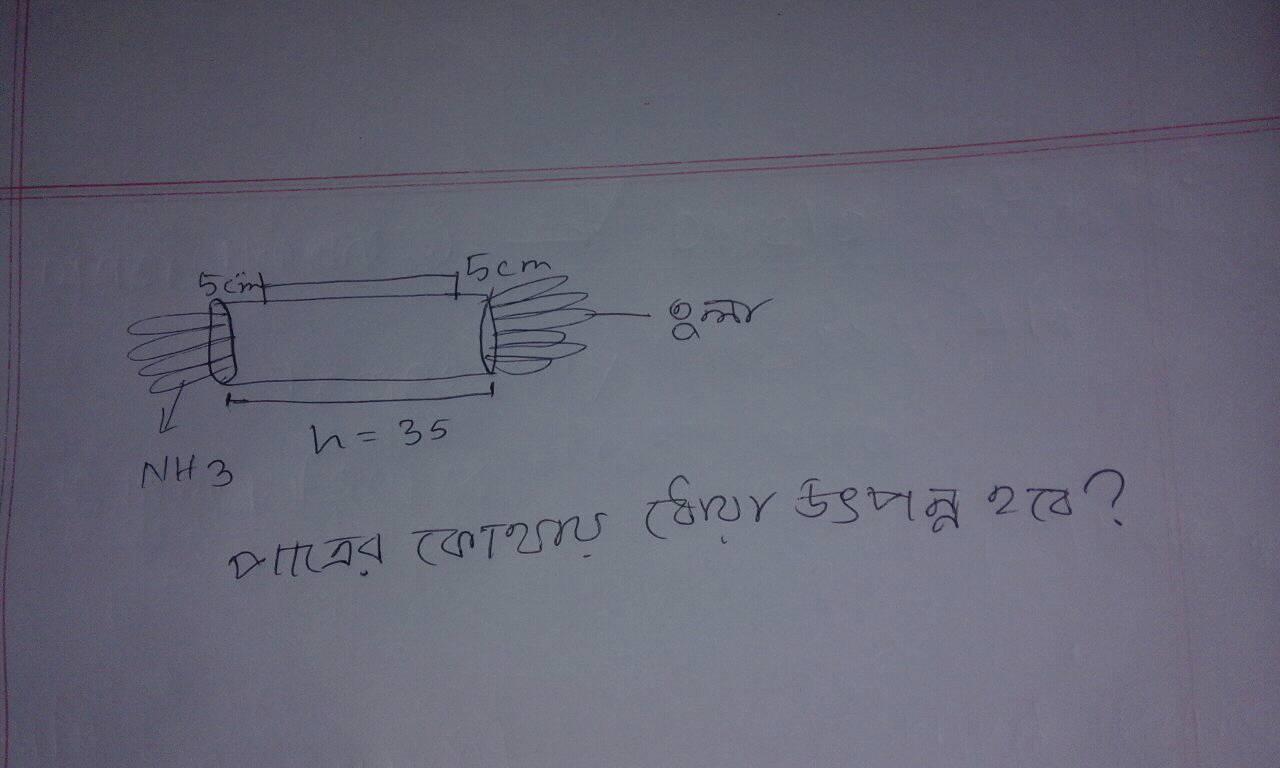 5cm 5cm
তুলা
h = 35
NH3
পাত্রের কোথায় ধোঁয়া উৎপন্ন হবে?